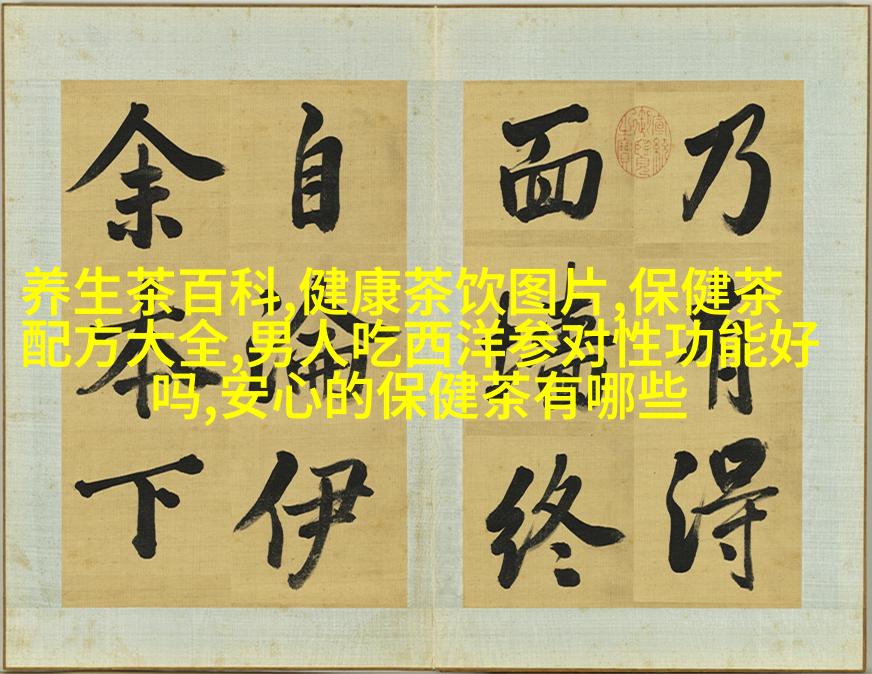 养生茶百科,健康茶饮图片,保健茶
配方大全,男人吃西洋参对性功能好
吗,安心的保健茶有哪些
乃有得
面終
自淪伊
余本下